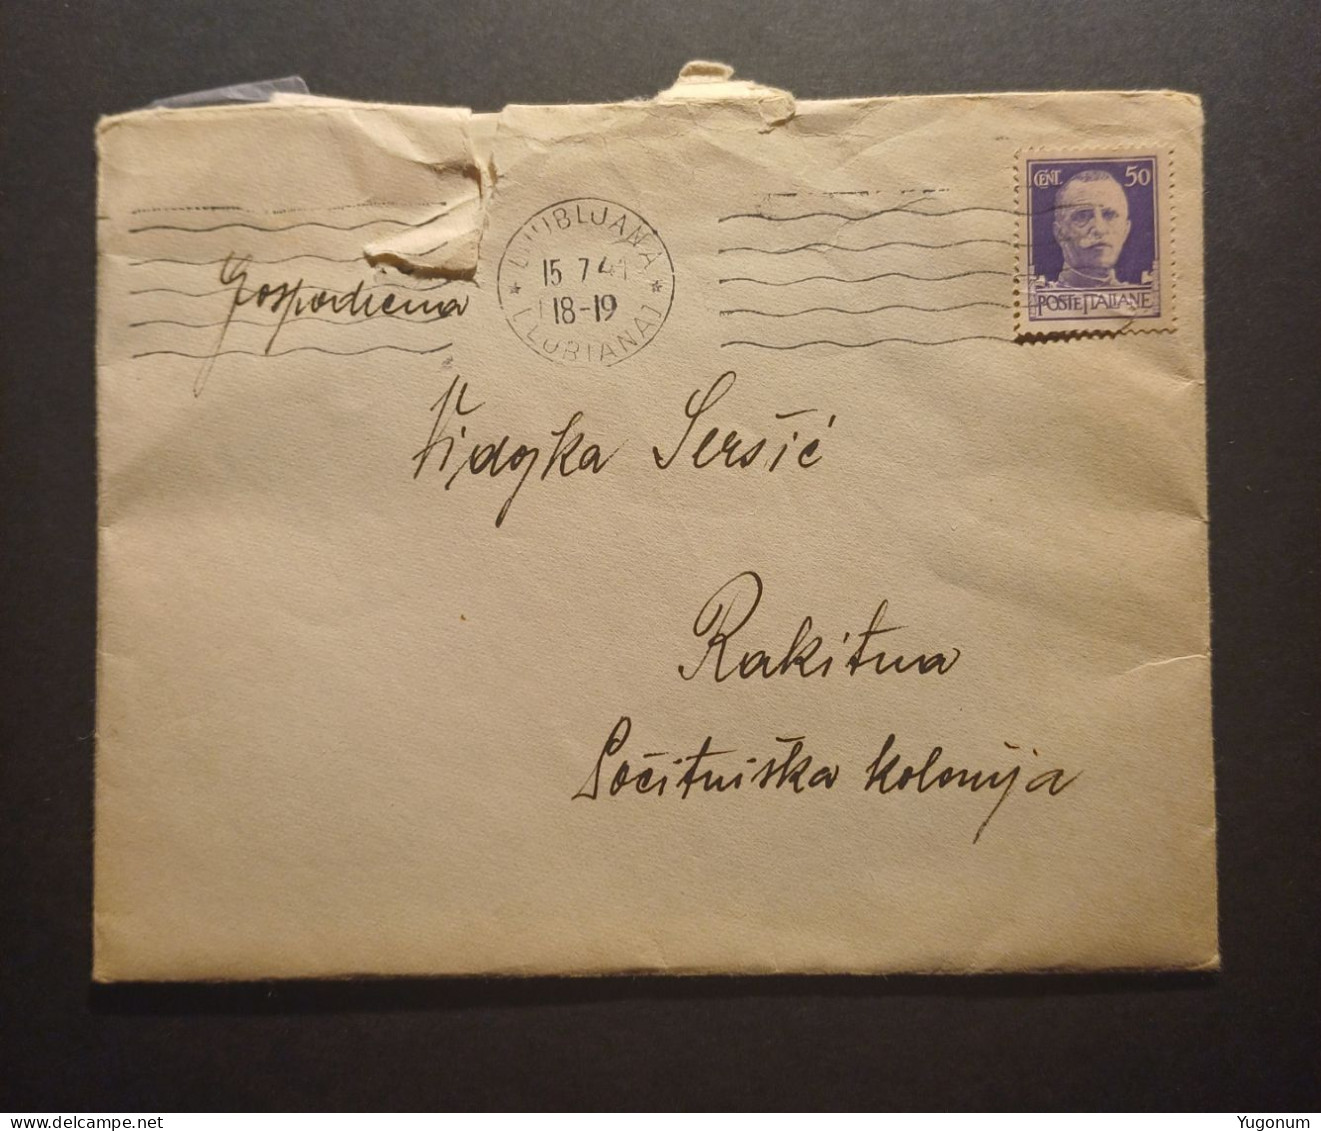 CENT. 50
POSTE ITALIANE
LJUBLJANA
15 7 41
18-19
LUBIANA 1
Gospodična
Vidojka Seršić
Rakitna
Počitniška kolonija
Yugonum